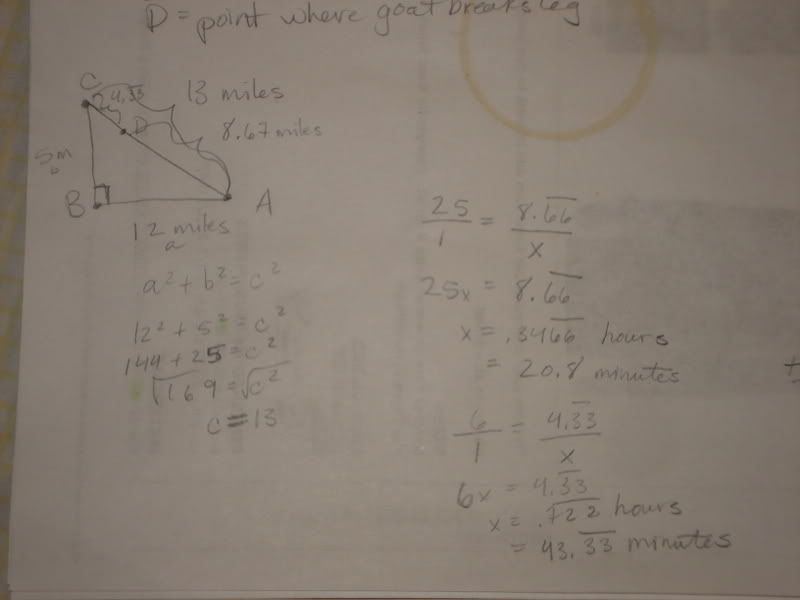 D = point where goat breaks leg
C
4.3̅3̅
13 miles
D
8.67 miles
5m
b
B
A
12 miles
a
a² + b² = c²
12² + 5² = c²
144 + 25 = c²
√169 = √c²
c = 13
25/1 = 8.6̅6̅/x
25x = 8.6̅6̅
x = .346̅6̅ hours
= 20.8 minutes
+
6/1 = 4.3̅3̅/x
6x = 4.3̅3̅
x = .7̅2̅2̅ hours
= 43.3̅3̅ minutes